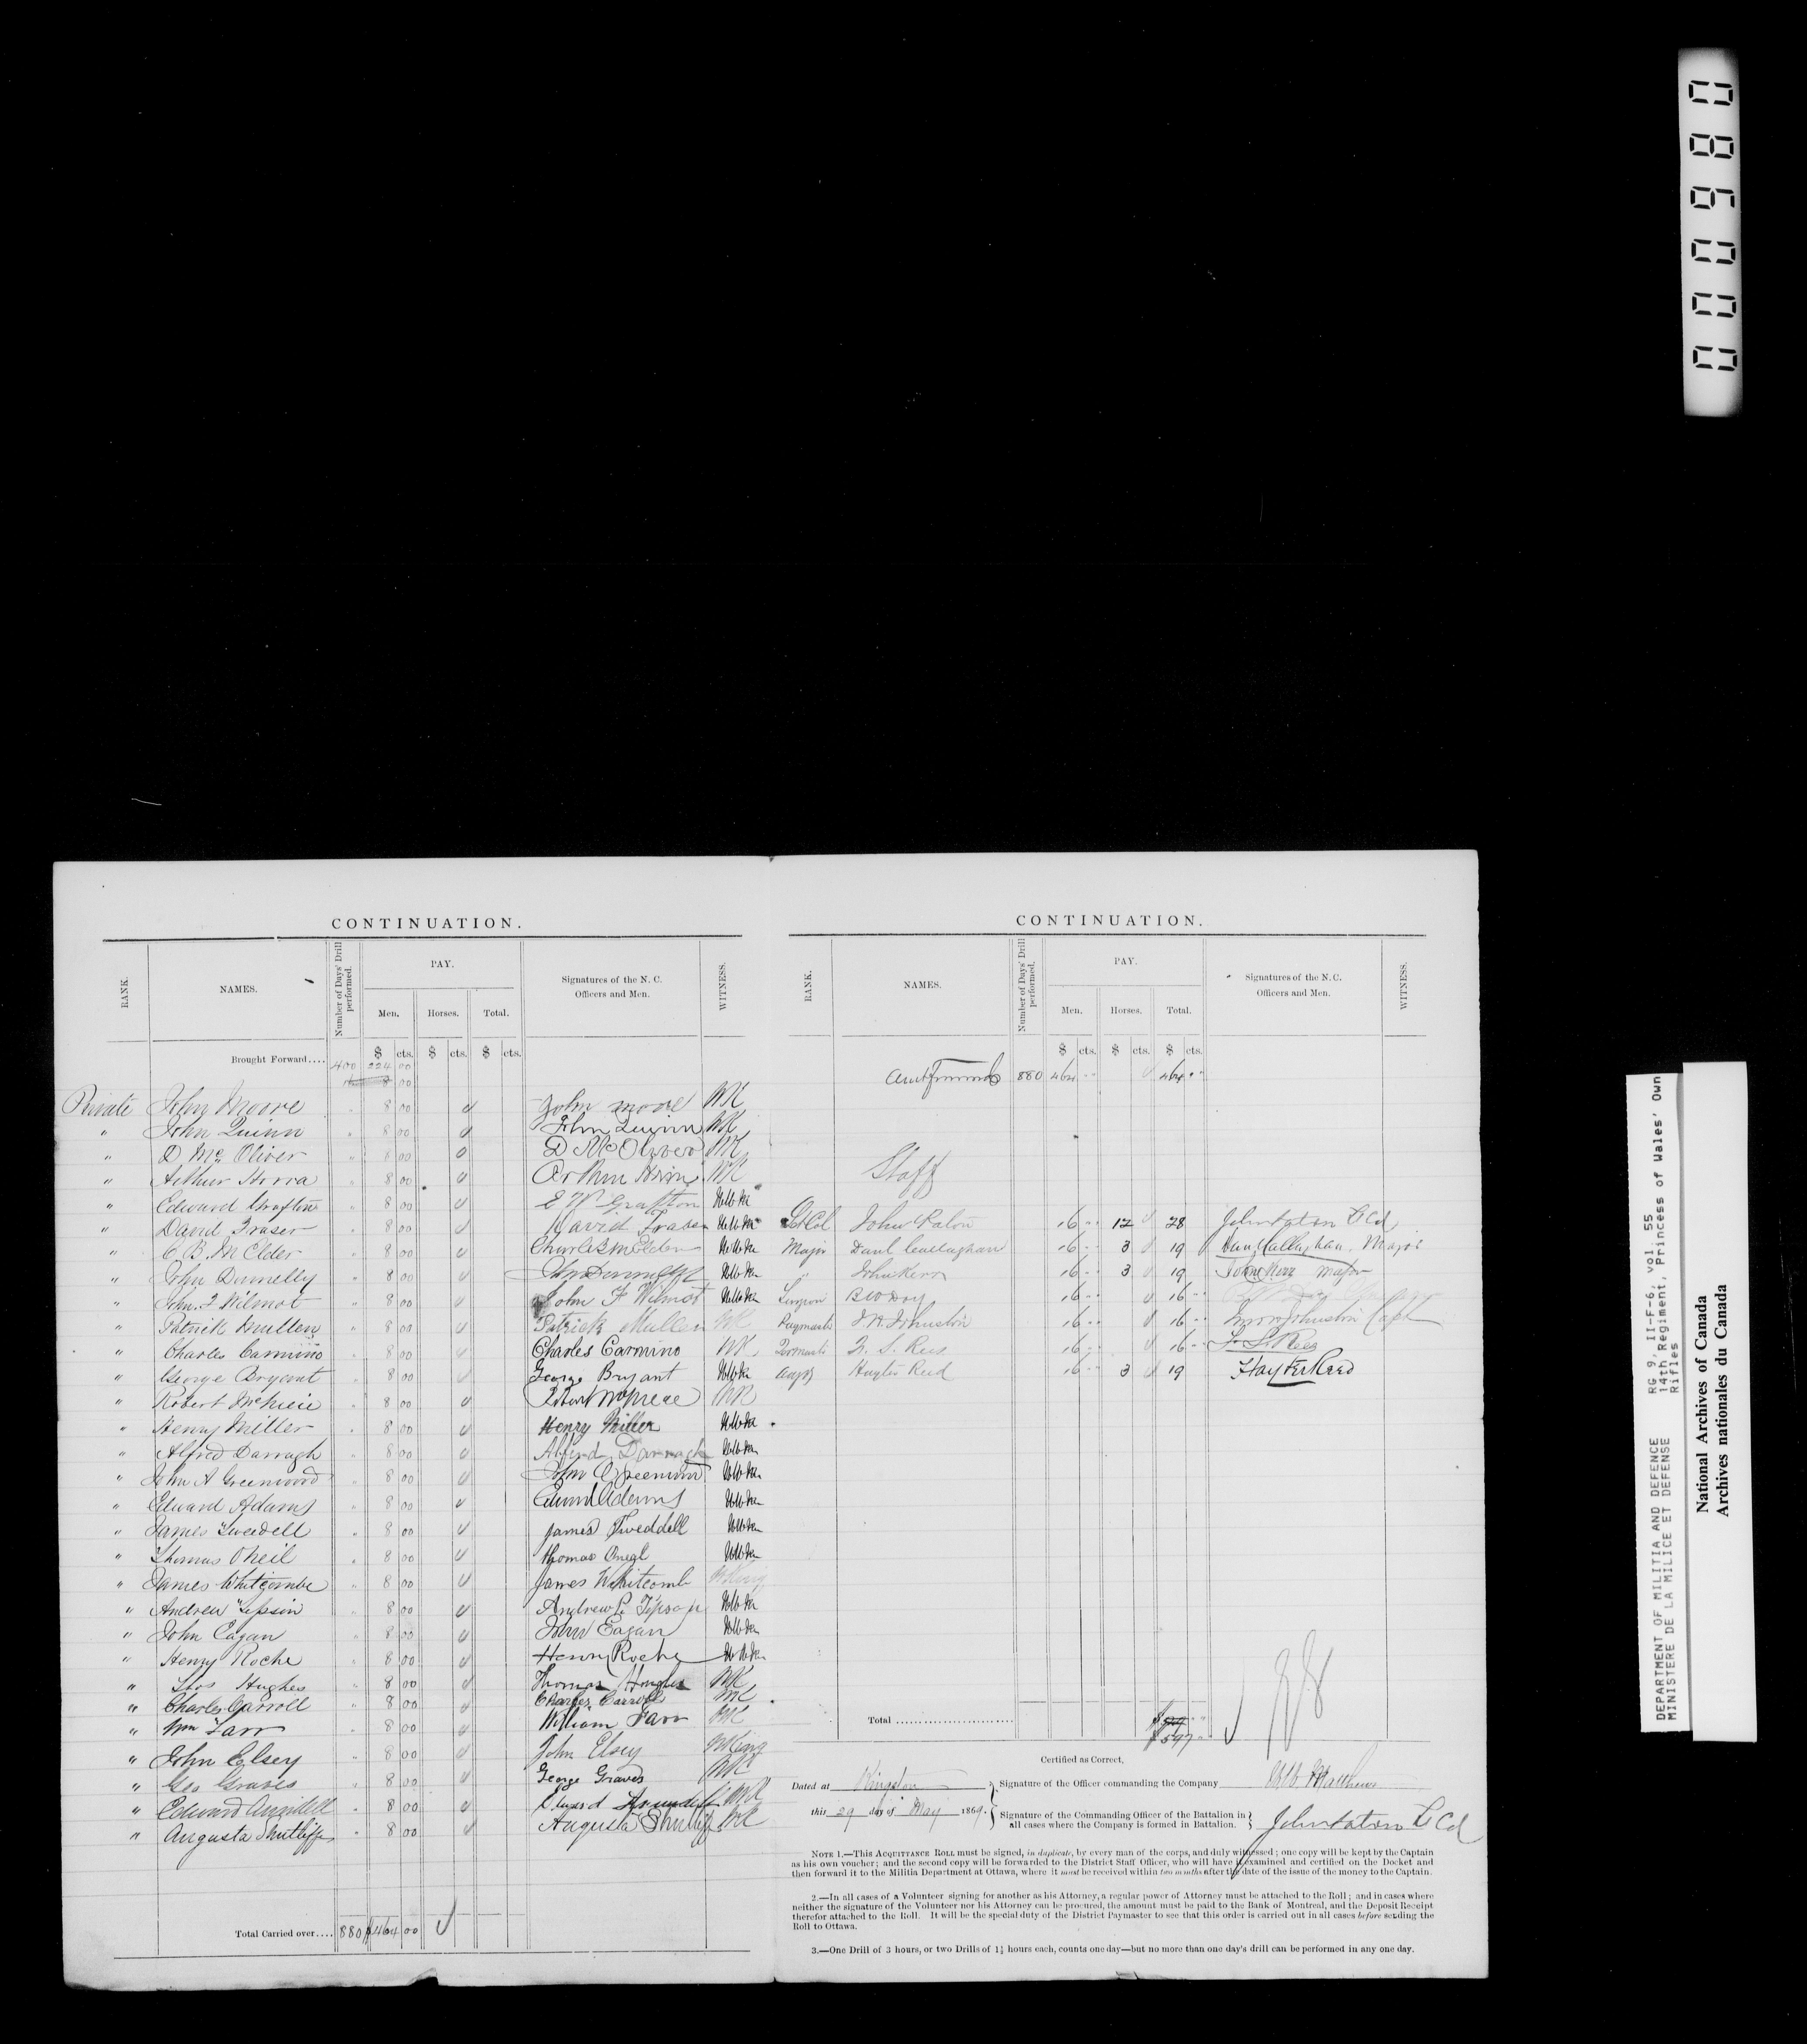 CONTINUATION.
RANK. NAMES. Number of Days' Drill performed. PAY. Signatures of the N. C. Officers and Men. WITNESS.
Men. Horses. Total.
$ cts. $ cts. $ cts.
Brought Forward.... 400 224 00
8 00
Private John Moore " 8 00 John Moore WK
" John Quinn " 8 00 John Quinn WK
" D. Mc Oliver " 8 00 D McOliver WK
" Arthur " 8 00 Arthur WK
" Edward Grafton " 8 00 E W Grafton
" David Fraser " 8 00 David Fraser
" C. B. McElder " 8 00 Charles B McElder
" John Donnelly " 8 00 John Donnelly
" John. F Wilmot " 8 00 John F Wilmot
" Patrick Mullen " 8 00 Patrick Mullen WK
" Charles Carmino " 8 00 Charles Carmino WK
" George Bryant " 8 00 George Bryant
" Robert " 8 00 Robert WK
" Henry Miller " 8 00 Henry Miller
" Alfred Darragh " 8 00 Alfred Darragh
" John A Greenwood " 8 00 John A Greenwood
" Edward Adams " 8 00 Edward Adams
" James Tweddell " 8 00 James Tweddell
" Thomas Oneil " 8 00 Thomas
" James Whitcombe " 8 00 James Whitcomb
" Andrew Tipson " 8 00 Andrew Tipson
" John Eagan " 8 00 John Eagan
" Henry Roche " 8 00 Henry Roche
" Thos Hughes " 8 00 Thomas Hughes WK
" Charles Carroll " 8 00 Charles Carroll WK
" Wm Farr " 8 00 William Farr WK
" John Elsey " 8 00 John Elsey WKing
" Geo Graves " 8 00 George Graves WK
" Edward Arundell " 8 00 Edward Arundell WK
" Augusta Shutliffe " 8 00 Augusta Shutliffe WK
Total Carried over.... 880 $464 00
CONTINUATION.
RANK. NAMES. Number of Days' Drill performed. PAY. Signatures of the N. C. Officers and Men. WITNESS.
Men. Horses. Total.
$ cts. $ cts. $ cts.
880 464 " 464 "
Staff
Lt Col John Paton 16 " 12 28 John Paton Lt Col
Major Danl Callaghan 16 " 3 19 Dan Callaghan. Major
" John Kerr 16 " 3 19 John Kerr Major
Surgeon B W Day 16 " 16 "
Paymaster Johnston 16 " 16 " Johnston Capt
F. S. Rees 16 " 16 " F. S. Rees
Hayter Reed 16 " 3 19 Hayter Reed
Total ........................
$597 "
Certified as Correct,
Dated at Kingston } Signature of the Officer commanding the Company Matthews
this 29 day of May 1869. } Signature of the Commanding Officer of the Battalion in all cases where the Company is formed in Battalion. } John Paton Lt Col
NOTE 1.—This ACQUITTANCE ROLL must be signed, in duplicate, by every man of the corps, and duly witnessed; one copy will be kept by the Captain
as his own voucher; and the second copy will be forwarded to the District Staff Officer, who will have it examined and certified on the Docket and
then forward it to the Militia Department at Ottawa, where it must be received within two months after the date of the issue of the money to the Captain.
2.—In all cases of a Volunteer signing for another as his Attorney, a regular power of Attorney must be attached to the Roll; and in cases where
neither the signature of the Volunteer nor his Attorney can be procured, the amount must be paid to the Bank of Montreal, and the Deposit Receipt
therefor attached to the Roll. It will be the special duty of the District Paymaster to see that this order is carried out in all cases before sending the
Roll to Ottawa.
3.—One Drill of 3 hours, or two Drills of 1½ hours each, counts one day—but no more than one day's drill can be performed in any one day.
000980
DEPARTMENT OF MILITIA AND DEFENCE RG 9, II-F-6, vol. 55
MINISTERE DE LA MILICE ET DEFENSE 14th Regiment, Princess of Wales' Own
Rifles
National Archives of Canada
Archives nationales du Canada